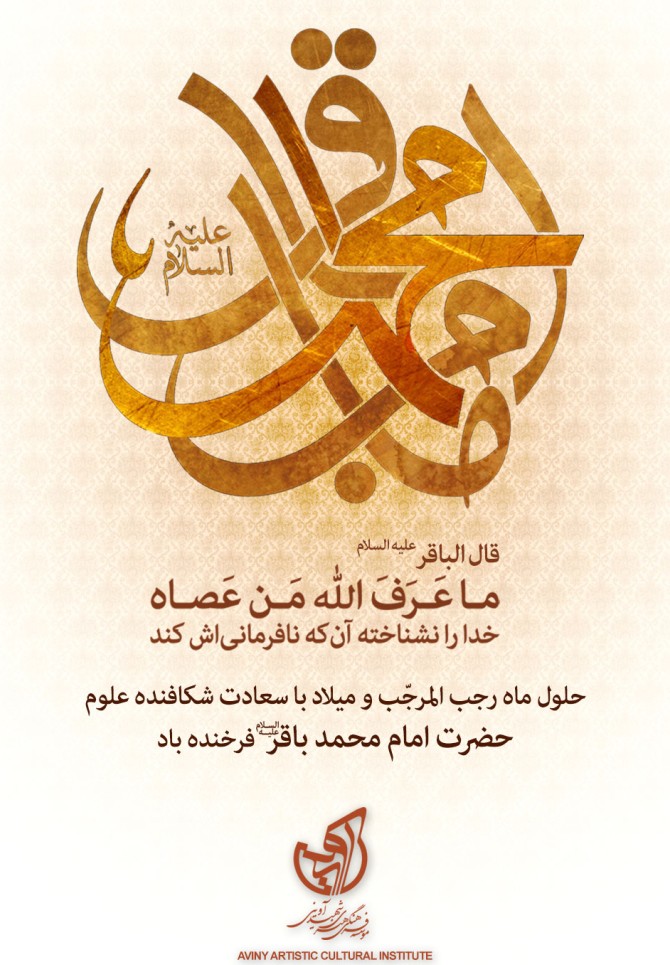 امام محمد باقر
علیه
السلام
قال الباقر علیه السلام
ما عَرَفَ الله مَن عَصاه
خدا را نشناخته آن‌که نافرمانی‌اش کند
حلول ماه رجب المرجّب و میلاد با سعادت شکافنده علوم
حضرت امام محمد باقر علیه السلام فرخنده باد
موسسه فرهنگی هنری شهید آوینی
AVINY ARTISTIC CULTURAL INSTITUTE